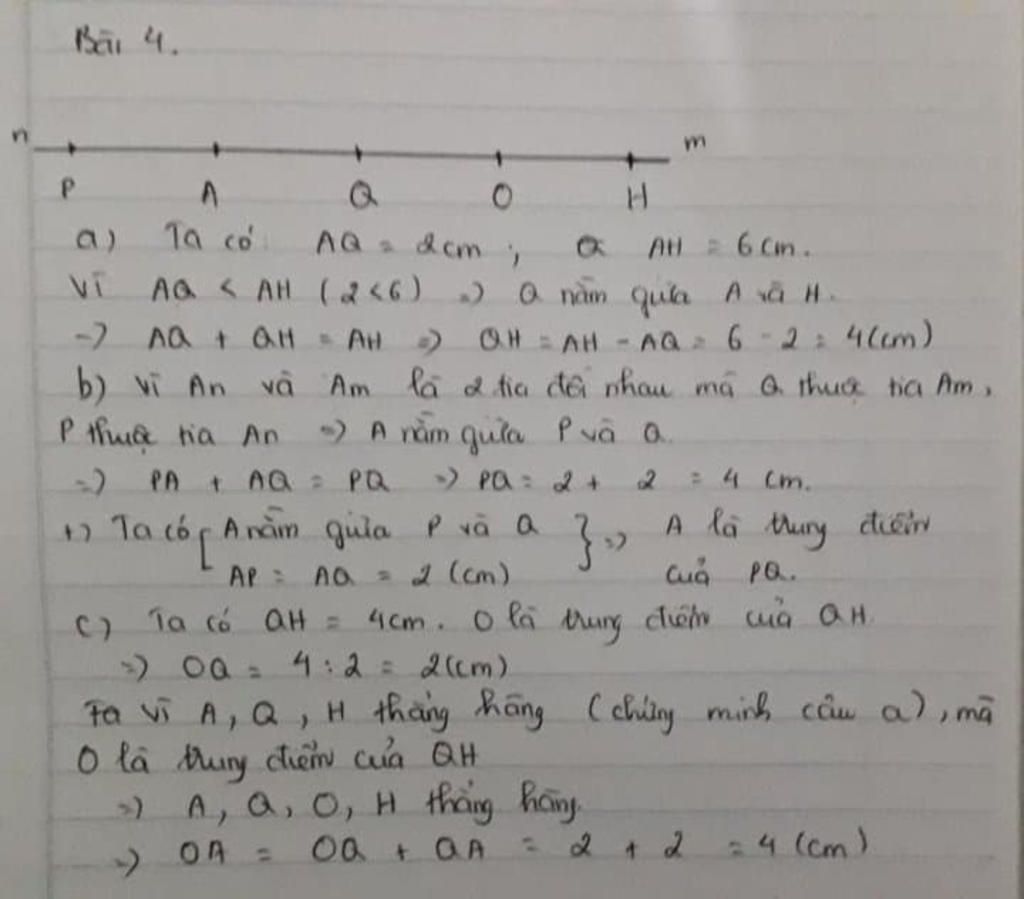 Bài 4.
n m
P A Q O H
a) Ta có: AQ = 2cm ; AH = 6cm.
Vì AQ < AH (2<6) => Q nằm giữa A và H.
=> AQ + QH = AH => QH = AH - AQ = 6 - 2 = 4(cm)
b) Vì An và Am là 2 tia đối nhau mà Q thuộc tia Am,
P thuộc tia An => A nằm giữa P và Q.
=> PA + AQ = PQ => PQ = 2 + 2 = 4 cm.
+) Ta có [ A nằm giữa P và Q } => A là trung điểm
AP = AQ = 2 (cm) của PQ.
c) Ta có QH = 4cm. O là trung điểm của QH.
=> OQ = 4 : 2 = 2(cm)
Ta vì A, Q, H thẳng hàng (chứng minh câu a), mà
O là trung điểm của QH
=> A, Q, O, H thẳng hàng.
=> OA = OQ + QA = 2 + 2 = 4 (cm)